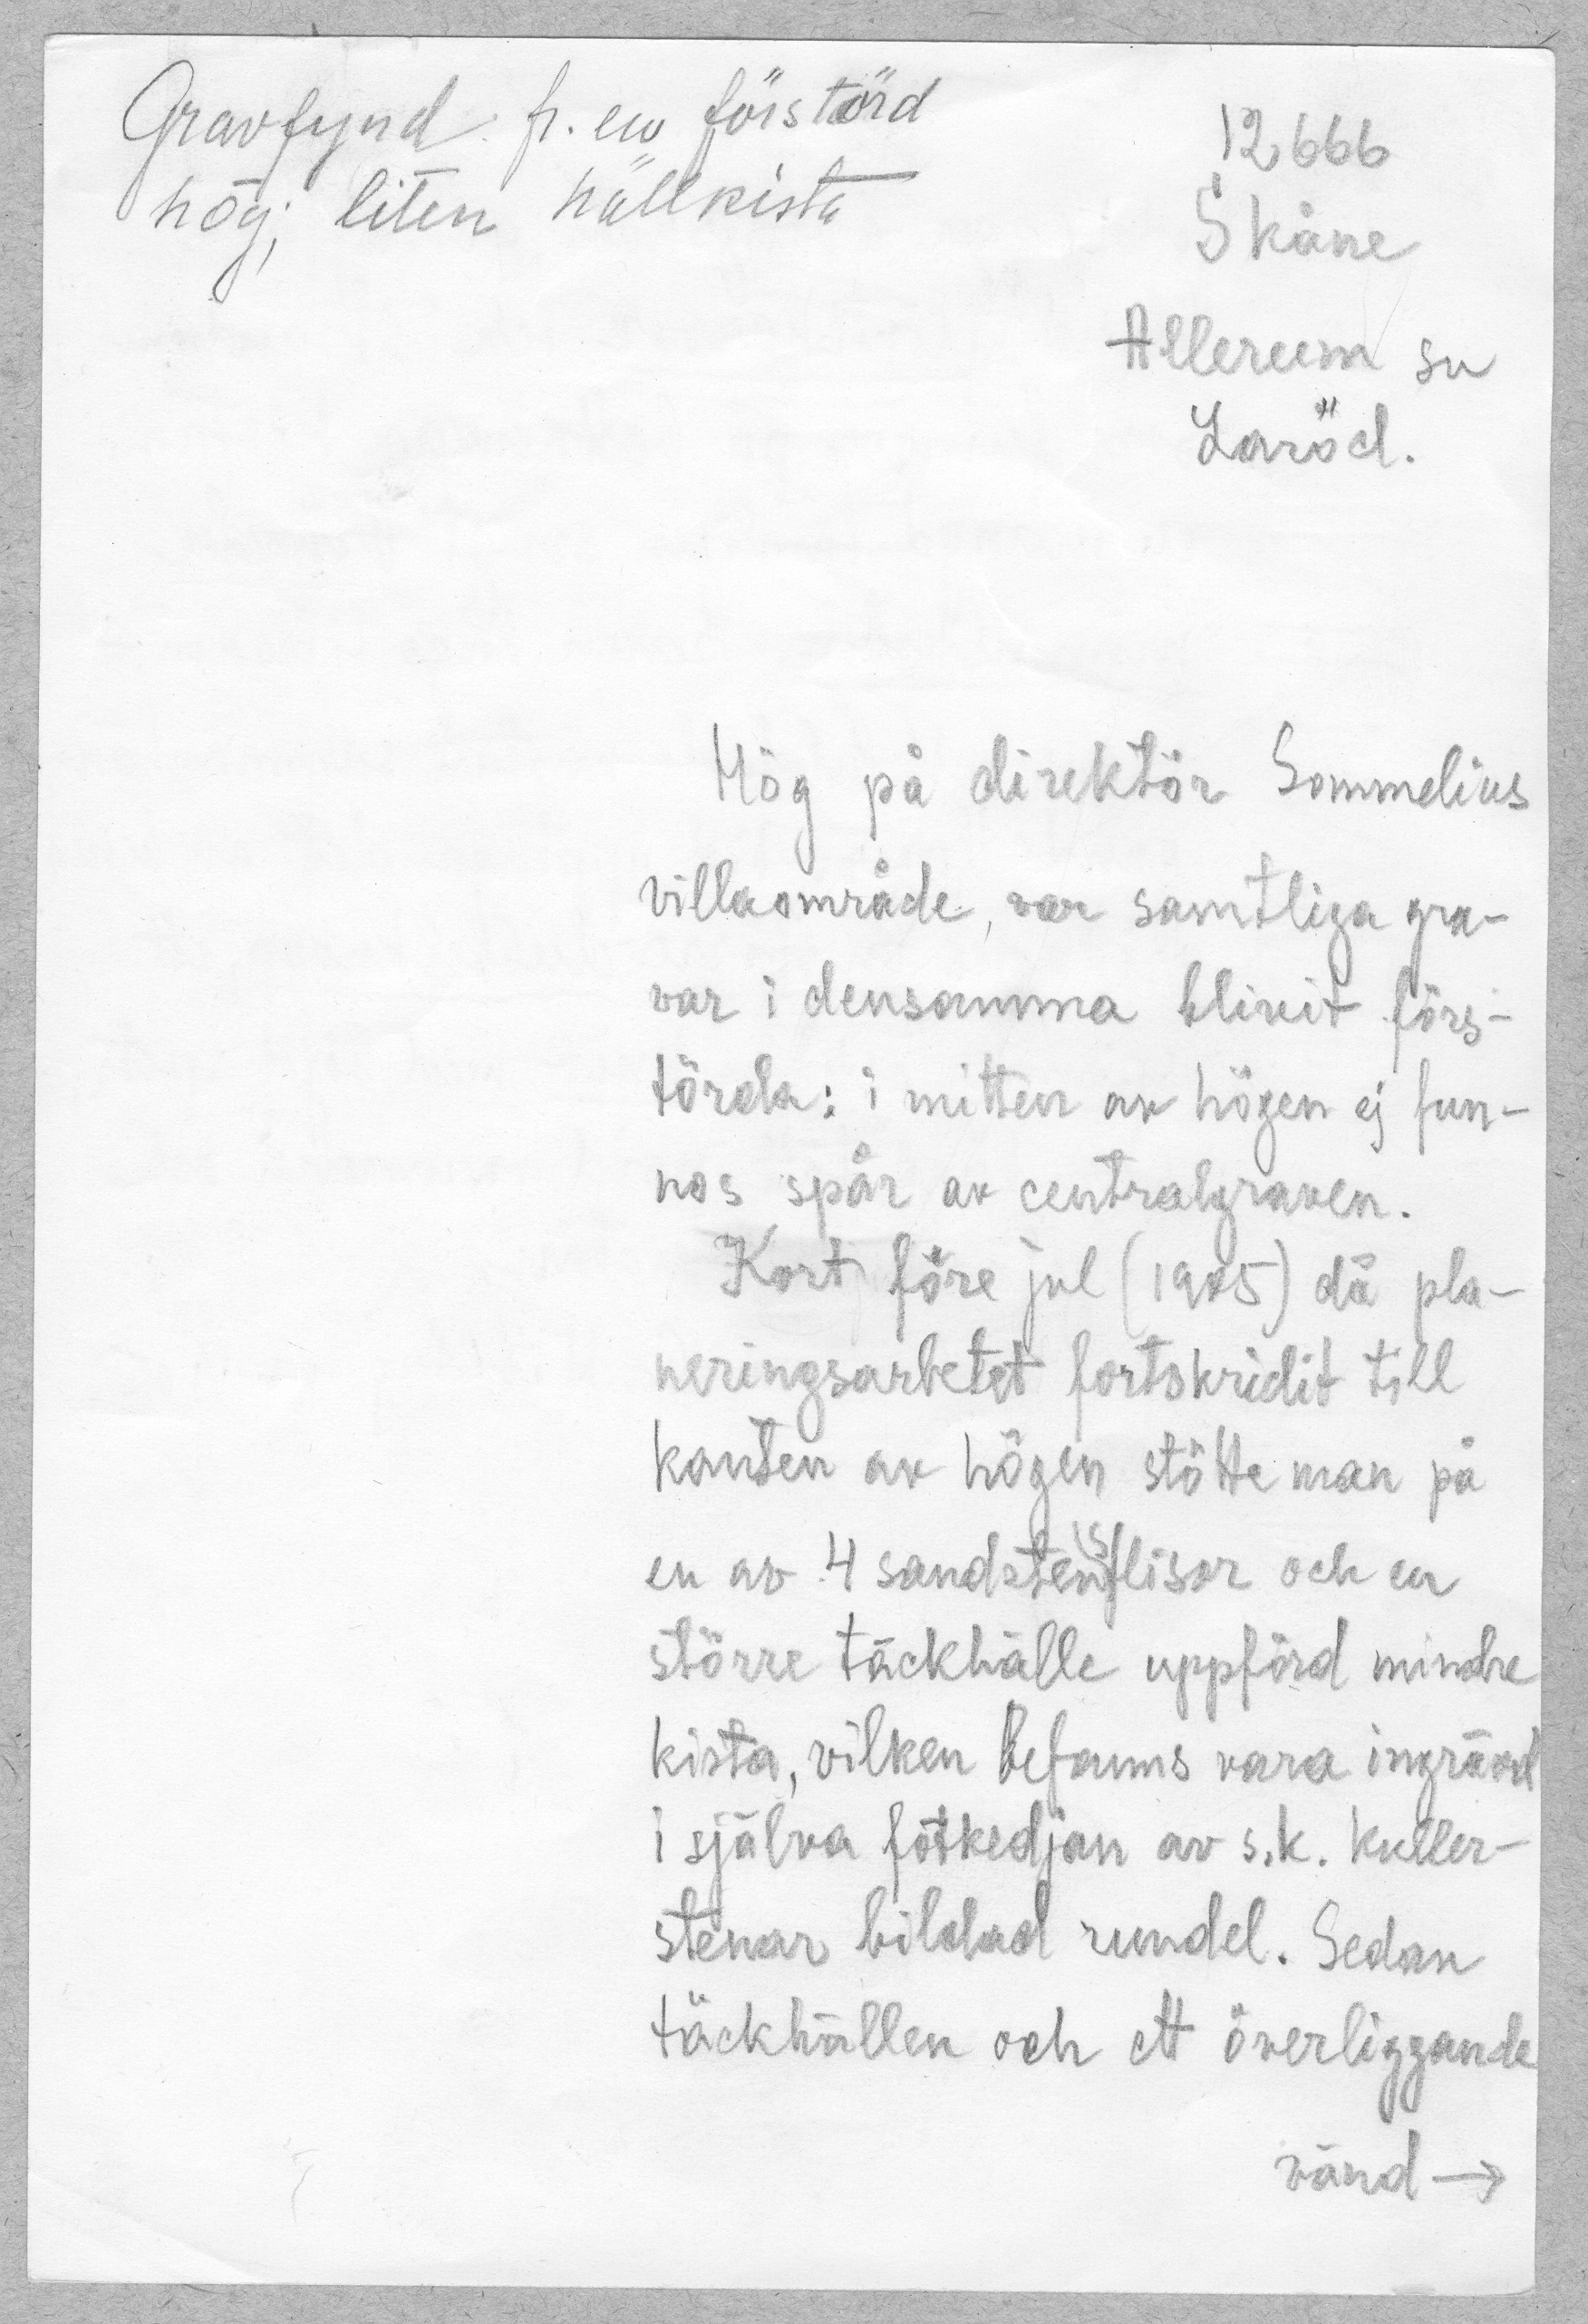 Gravfynd fr. en förstörd
hög; liten hällkista
12666
Skåne
Allerum sn
Laröd.
Hög på direktör Sommelius
villaområde, var samtliga gra-
var i densamma blivit förs-
törda: i mitten av högen ej fun-
nos spår av centralgraven.
Kort före jul (1905) då pla-
neringsarbetet fortskridit till
kanten av högen stötte man på
en av 4 sandstensflisor och en
större täckhälle uppförd mindre
kista, vilken befanns vara ingrävd
i själva fotkedjan av s.k. kuller-
stenar bildad rundel. Sedan
täckhällen och ett överliggande
vänd →